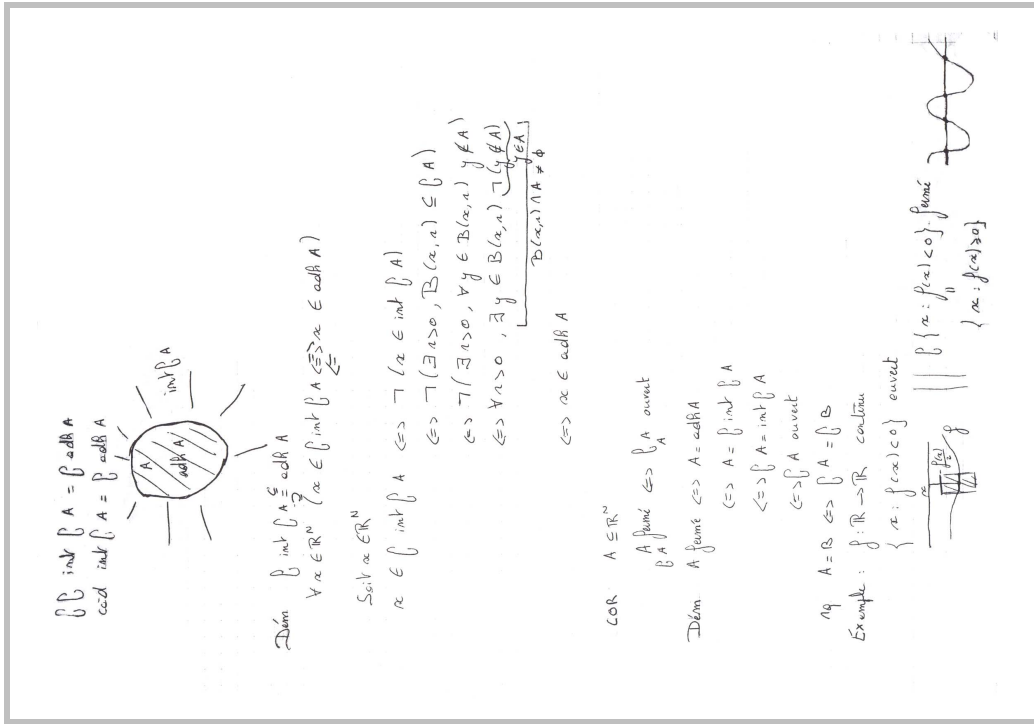 ∁∁ int ∁ A = ∁ adh A
càd int ∁ A = ∁ adh A
A
adh A
int ∁ A
Dém ∁ int ∁ A = adh A
⊆
⊇
∀ x ∈ ℝᴺ (x ∈ ∁ int ∁ A <=> x ∈ adh A)
=>
<=
Soit x ∈ ℝᴺ
x ∈ ∁ int ∁ A <=> ¬ (x ∈ int ∁ A)
<=> ¬ (∃ r>0, B(x,r) ⊆ ∁ A)
<=> ¬ (∃ r>0, ∀ y ∈ B(x,r) y ∉ A)
<=> ∀ r>0, ∃ y ∈ B(x,r) ¬ (y ∉ A)
y ∈ A
B(x,r) ∩ A ≠ ϕ
<=> x ∈ adh A
COR A ⊆ ℝᴺ
A fermé <=> ∁ A ouvert
∁ A
Dém A fermé <=> A = adh A
<=> A = ∁ int ∁ A
<=> ∁ A = int ∁ A
<=> ∁ A ouvert
rq A = B <=> ∁ A = ∁ B
Exemple : f : ℝ → ℝ continu
{ x : f(x) < 0 } ouvert
∁ { x : f(x) < 0 } . fermé
=
{ x : f(x) ⩾ 0 }
x
f(x)
f